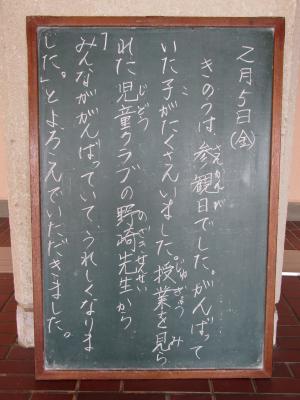 2月5日(金)
きのうは、参観日でした。がんばって
いた子がたくさんいました。授業を見ら
れた児童クラブの野崎先生から
「みんながんばっていて、うれしくなりま
した。」とよろこんでいただきました。